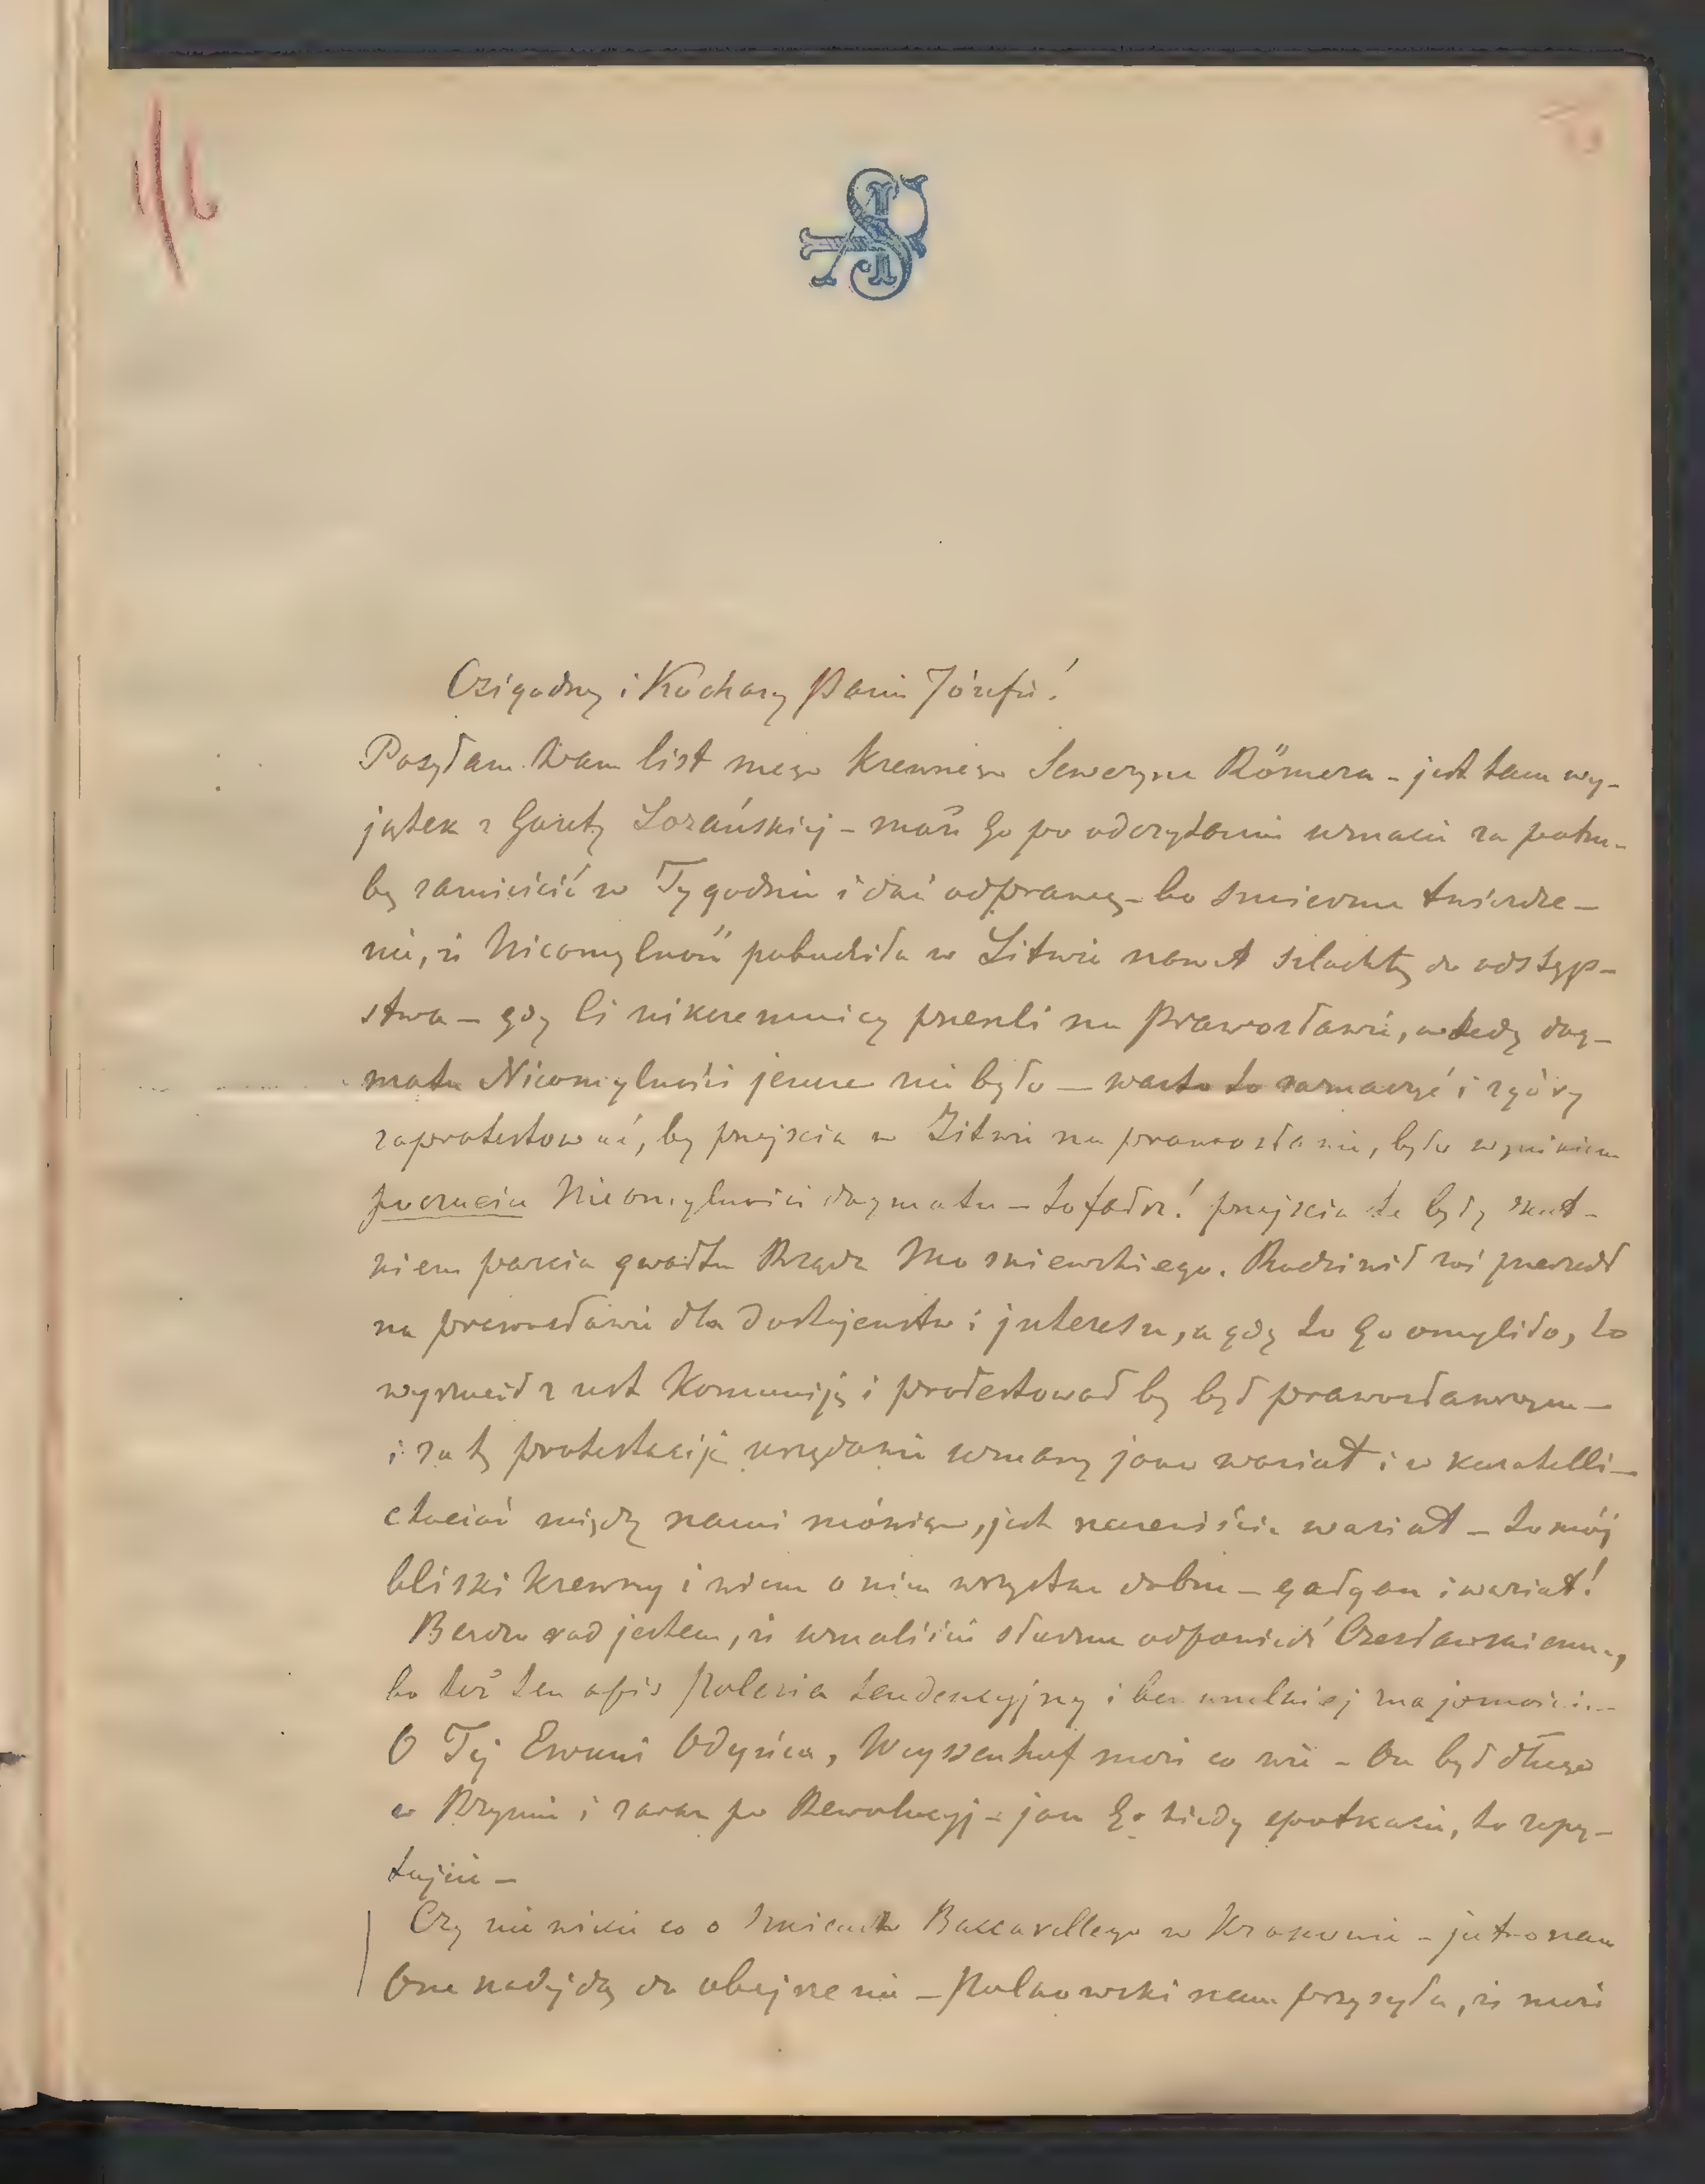 Czigodny i Kochany Panie Józefie!
Posyłam Wam list mego krewnego Seweryna Römera - jest tam wy-
jątek z Gazety Lozańskiej - może go po odczytaniu uznacie za potrze-
bę zamieścić w Tygodniu i dać odprawę - bo śmieszne twierdze-
nie, iż Nieomylność pobudziła w Litwie nawet szlachtę do odstęp-
stwa - gdy li nikczemnicy przeszli na Prawosławie, wtedy dog-
matu Nieomylności jeszcze nie było - warto to zaznaczyć i zgóry
zaprotestować, by przejścia w Litwie na prawosławie, było wynikiem
poczucia Nieomylności dogmatu - to fałsz! przejścia te były skut-
kiem parcia gwałtu Rządu Moskiewskiego. Radziwił zaś przeszedł
na prawosławie dla Dostojeństw i interesu, a gdy to go omyliło, to
wyrzucił z ust Komuniję i protestował by był prawosławnym -
i za tę protestacije urzędownie uznany jako wariat i w kuratelli -
chociaż między nami mówiąc, jest rzeczywiście wariat - to mój
bliski krewny i wiem o nim wszystko dobrze - gałgan i wariat!
Bardzo rad jestem, iż uznaliście słuszne odpowiedź Czesławskiemu,
bo też ten opis tendencyjny i bez znajomości -
O Tej Odyńca, Weyssenhof może co wie - On był długo
w Rzymie i zaraz po Rewolucyj - jak Go kiedy spotkacie, to zapy-
tajcie -
Czy nie wiecie co o Baccarellego w Krakowie - jutro nam
One nadejdą do obejrzenia - nam przysyła, iż może